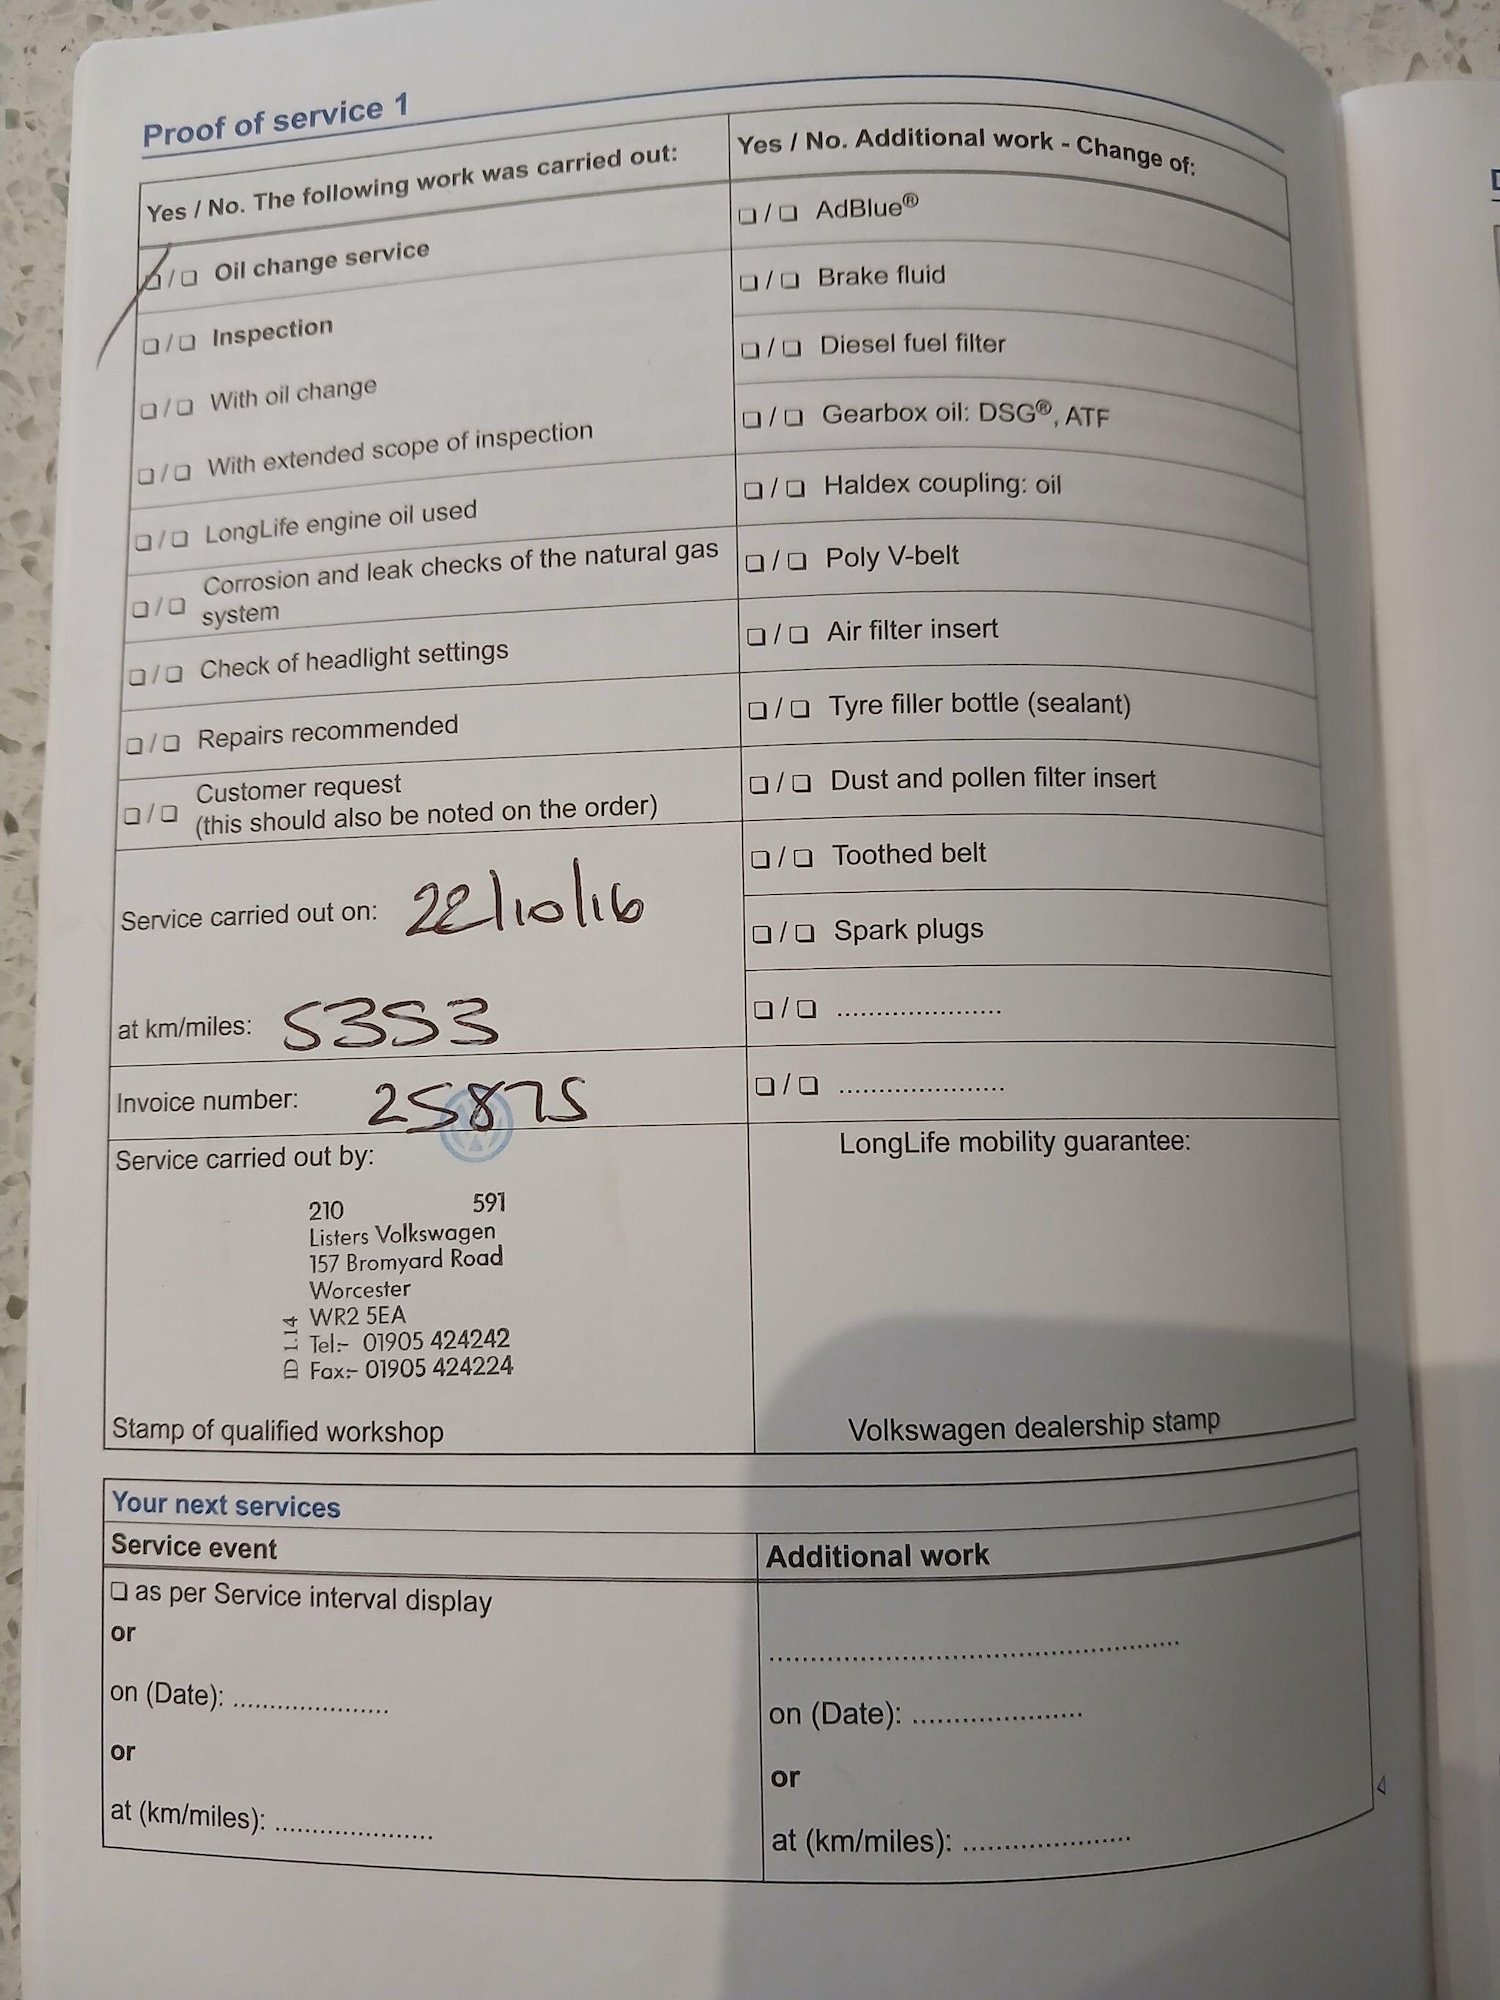 Proof of service 1
Yes / No. The following work was carried out:
❑ / ❑ Oil change service
❑ / ❑ Inspection
❑ / ❑ With oil change
❑ / ❑ With extended scope of inspection
❑ / ❑ LongLife engine oil used
❑ / ❑ Corrosion and leak checks of the natural gas
system
❑ / ❑ Check of headlight settings
❑ / ❑ Repairs recommended
❑ / ❑ Customer request
(this should also be noted on the order)
Service carried out on: 22/10/16
at km/miles: 5353
Invoice number: 25875
Service carried out by:
210 591
Listers Volkswagen
157 Bromyard Road
Worcester
WR2 5EA
Tel:- 01905 424242
Fax:- 01905 424224
ID 1.14
Stamp of qualified workshop
Yes / No. Additional work - Change of:
❑ / ❑ AdBlue®
❑ / ❑ Brake fluid
❑ / ❑ Diesel fuel filter
❑ / ❑ Gearbox oil: DSG®, ATF
❑ / ❑ Haldex coupling: oil
❑ / ❑ Poly V-belt
❑ / ❑ Air filter insert
❑ / ❑ Tyre filler bottle (sealant)
❑ / ❑ Dust and pollen filter insert
❑ / ❑ Toothed belt
❑ / ❑ Spark plugs
❑ / ❑ .....................
❑ / ❑ .....................
LongLife mobility guarantee:
Volkswagen dealership stamp
Your next services
Service event
❑ as per Service interval display
or
on (Date): .....................
or
at (km/miles): .....................
Additional work
..................................................
on (Date): .....................
or
at (km/miles): .....................